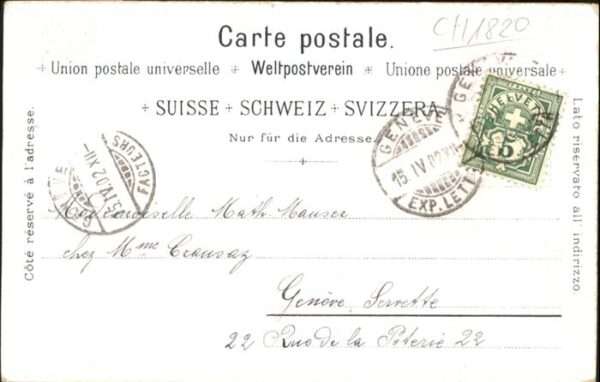 CH1820
Carte postale.
Union postale universelle Weltpostverein Unione postale universale
SUISSE SCHWEIZ SVIZZERA
Nur für die Adresse.
Côté réservé à l'adresse.
Lato riservato all' indirizzo.
GENÈVE
15.IV.02.XII
EXP. LETT.
HELVETIA
5
15.IV.02.XII
FACTEURS
Mademoiselle Math. Mauser
chez Mme Crausaz
Genève Servette
22 Rue de la Poterie 22